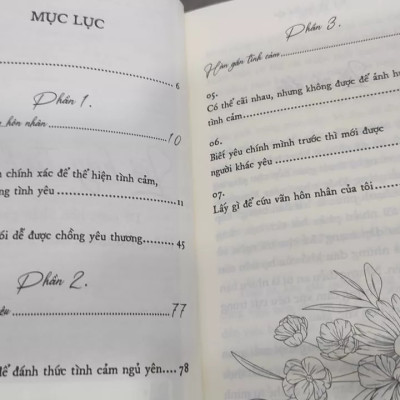 MỤC LỤC
6
Phần 1.
hôn nhân 10
chính xác để thể hiện tình cảm,
tình yêu 11
dễ được chồng yêu thương 45
Phần 2.
77
để đánh thức tình cảm ngủ yên.... 78
Phần 3.
Hàn gắn tình cảm
05.
Có thể cãi nhau, nhưng không được để ảnh
tình cảm
06.
Biết yêu chính mình trước thì mới được
người khác yêu
07.
Lấy gì để cứu vãn hôn nhân của tôi